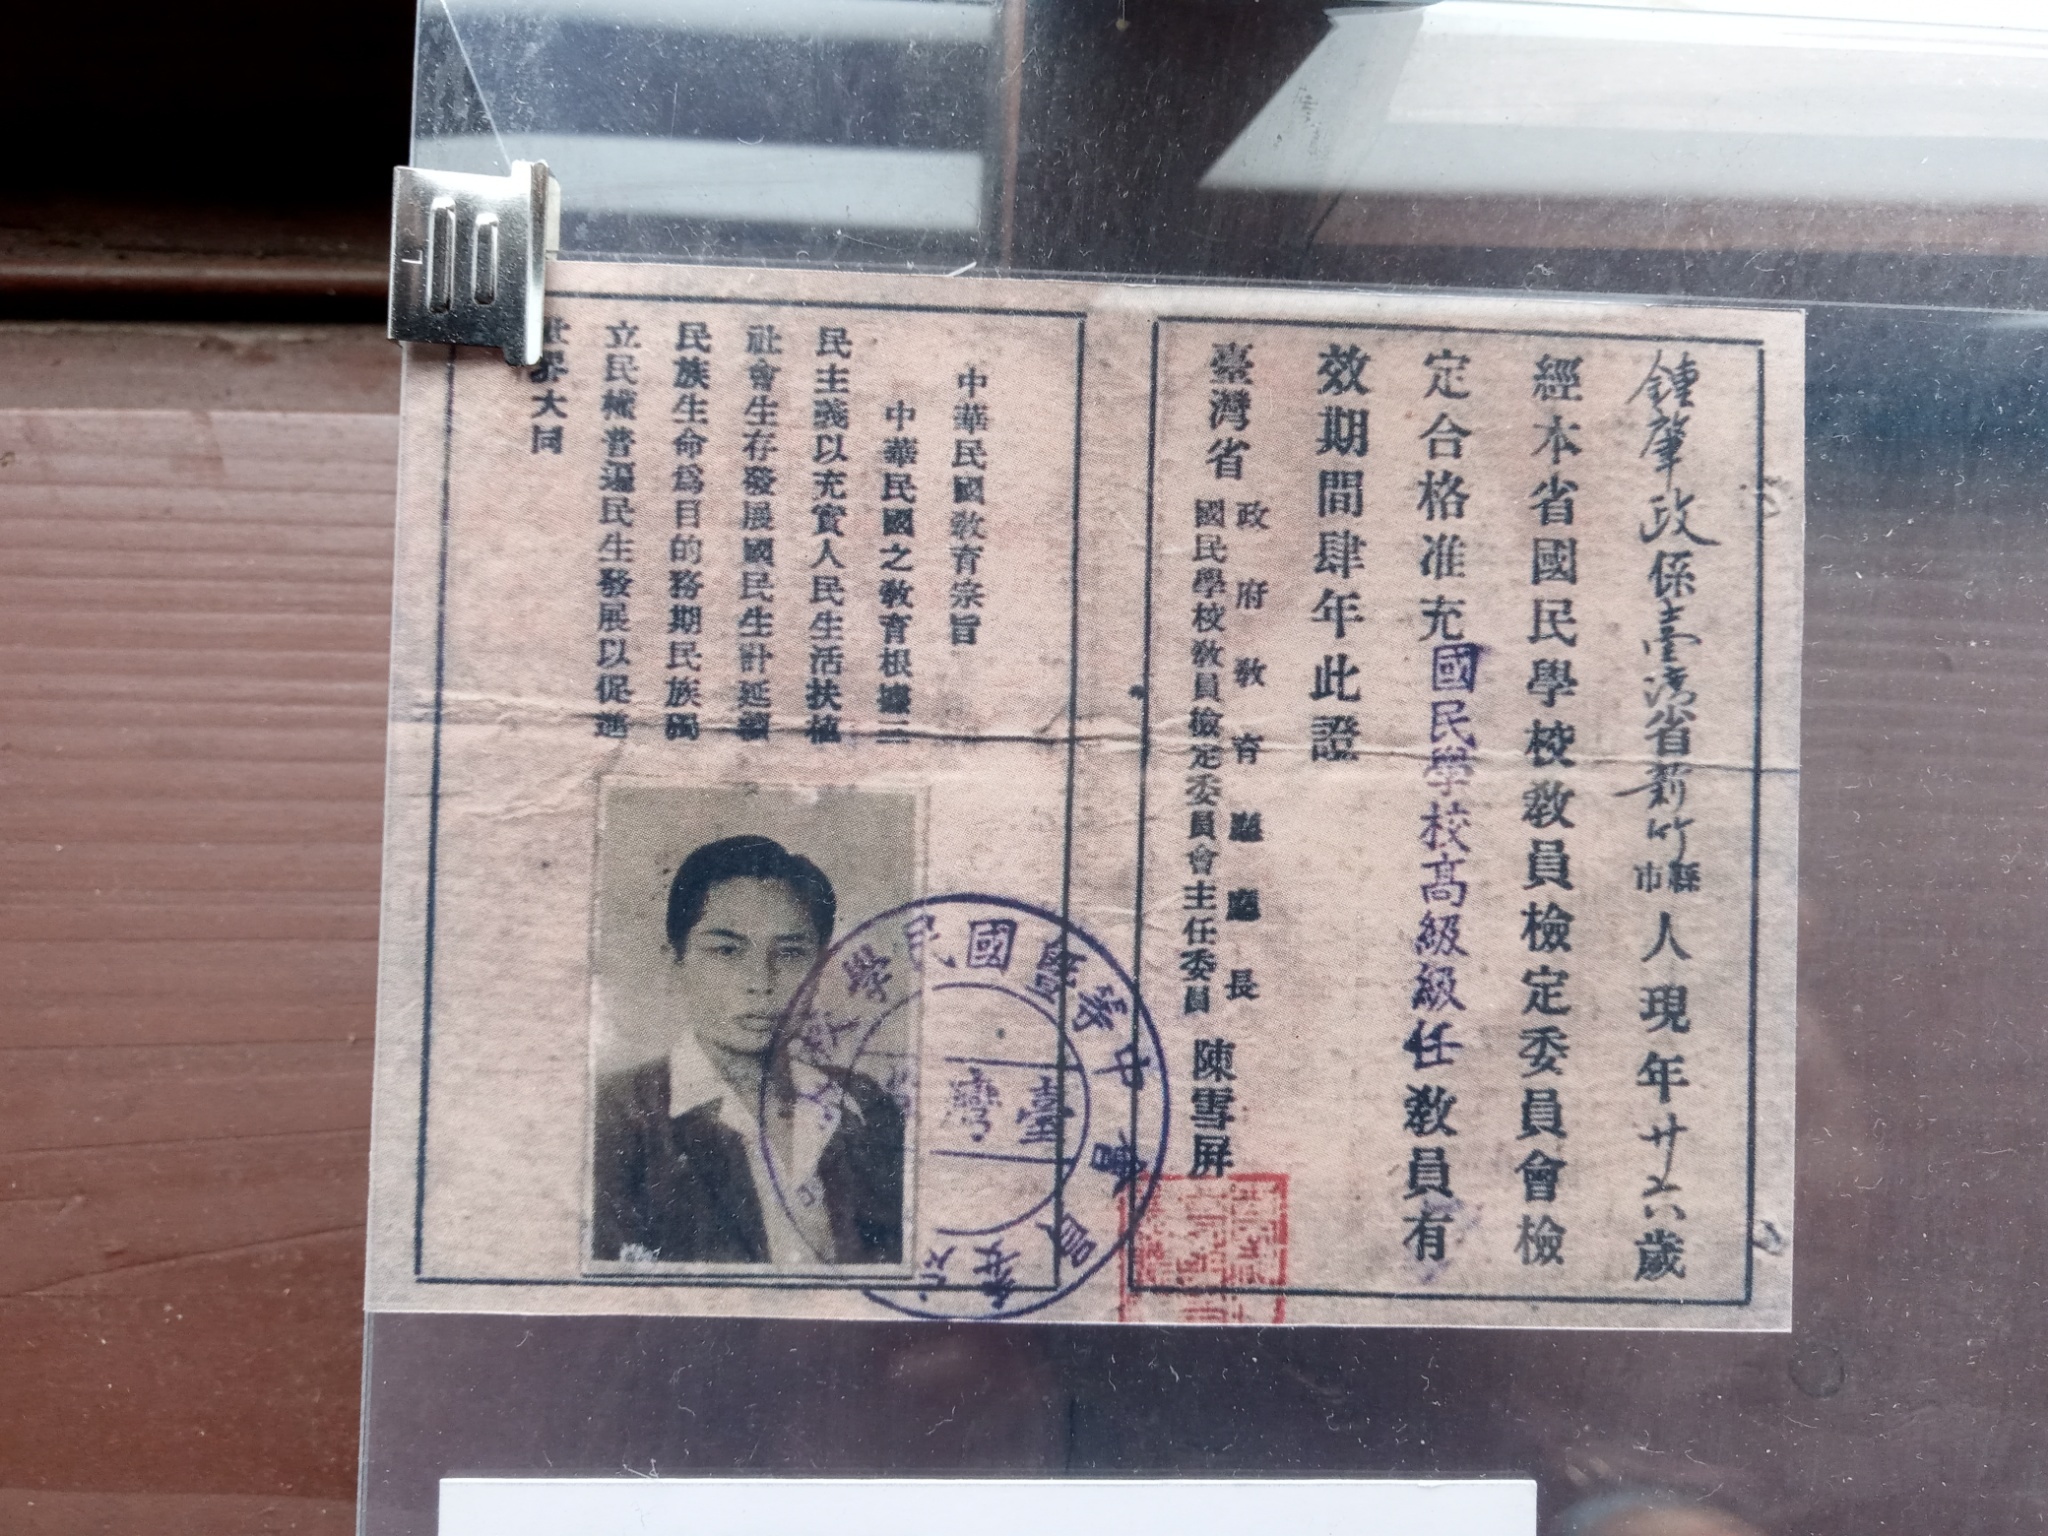 鍾肇政係臺灣省新竹縣市人現年廿六歲
經本省國民學校教員檢定委員會檢
定合格准充國民學校高級級任教員有
效期間肆年此證
臺灣省
政府教育廳廳長
國民學校教員檢定委員會主任委員
陳雪屏
中華民國教育宗旨
中華民國之教育根據三
民主義以充實人民生活扶植
社會生存發展國民生計延續
民族生命為目的務期民族獨
立民權普遍民生發展以促進
世界大同
臺灣
中等暨國民學